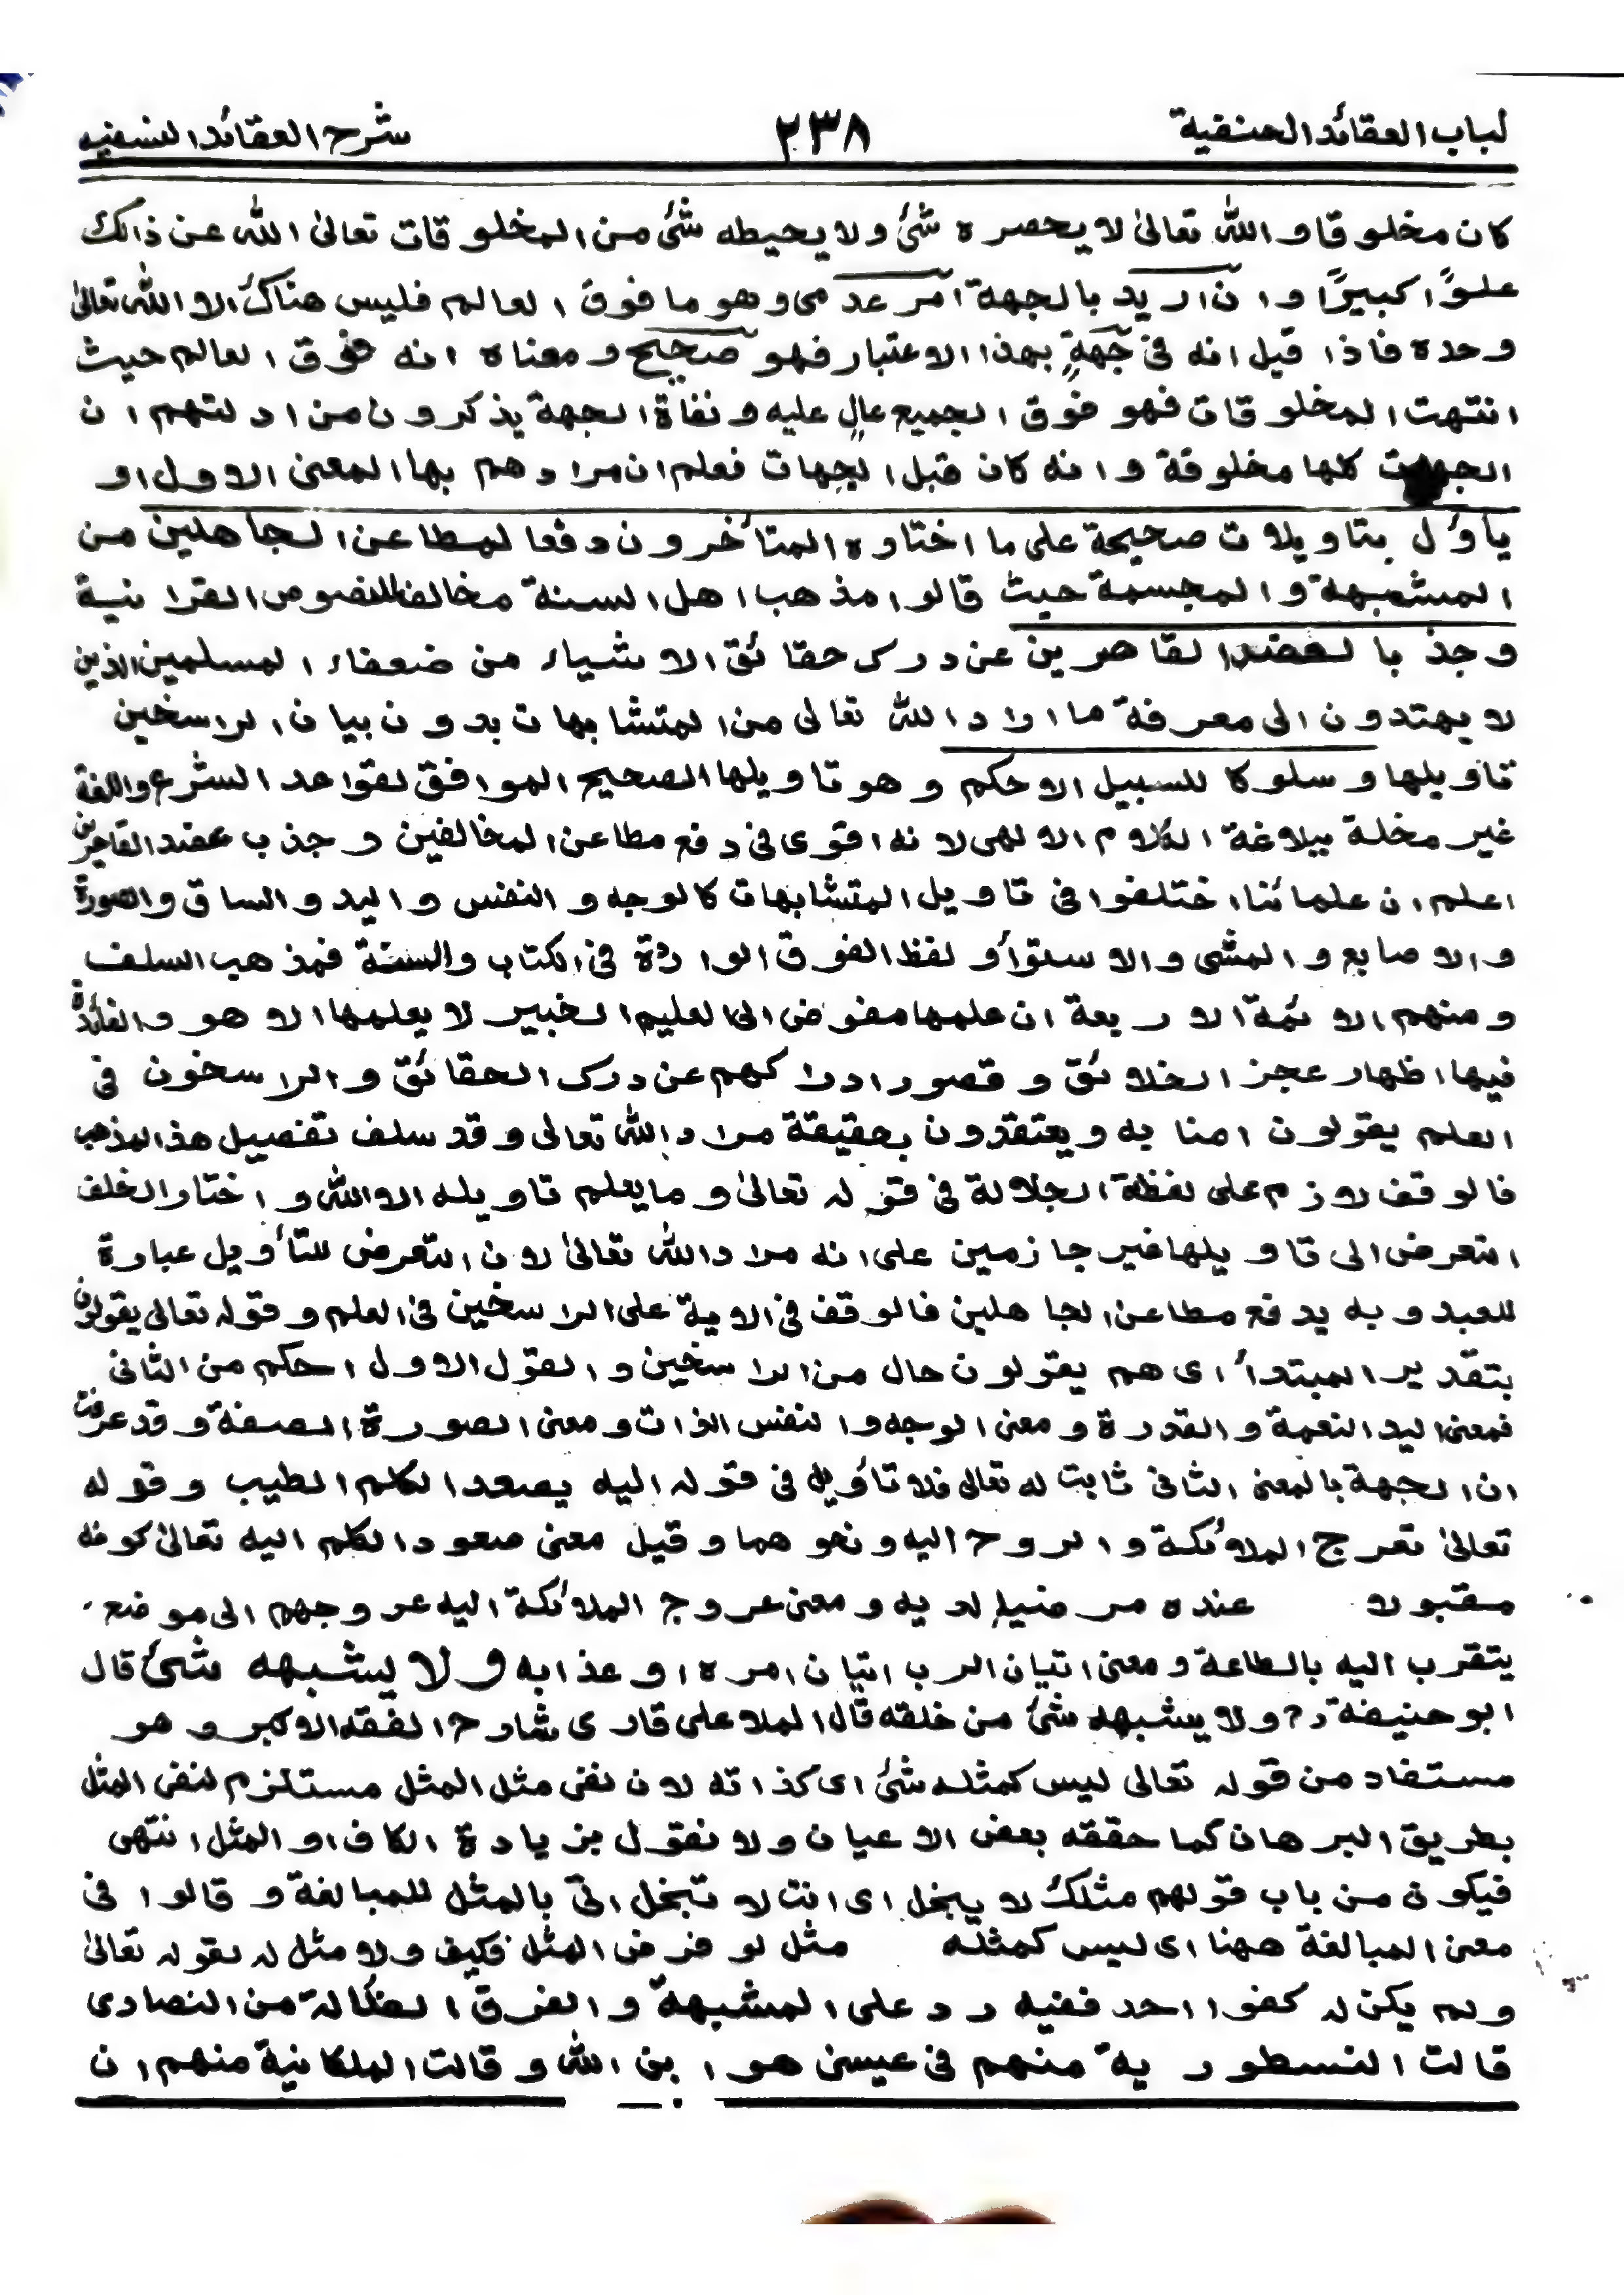 لباب العقائد الحنفية ٢٣٨ شرح العقائد النسفيه
كان مخلوقا والله تعالىٰ لا يحصره شئ ولا يحيطه شئ من المخلوقات تعالىٰ الله عن ذالك
علوًّا كبيرًا وان اريد بالجهة امر عدمى وهو ما فوق العالم فليس هناك الا الله تعالىٰ
وحده فاذا قيل انه فى جهةٍ بهذا الاعتبار فهو صحيح ومعناه انه فوق العالم حيث
انتهت المخلوقات فهو فوق الجميع عالٍ عليه ونفاة الجهة يذكرون من ادلتهم ان
الجهات كلها مخلوقة وانه كان قبل الجهات فعلم ان مرادهم بها المعنى الاول او
يأوّل بتاويلات صحيحة على ما اختاره المتأخرون دفعا لمطاعن الجاهلين من
المشبهة والمجسمة حيث قالوا مذهب اهل السنة مخالف للنصوص القرانية
وجذبا لعضد القاصرين عن درك حقائق الاشياء من ضعفاء المسلمين الذين
لا يهتدون الى معرفة ما اراد الله تعالى من المتشابهات بدون بيان الراسخين
تاويلها وسلوكا للسبيل الاحكم وهو تاويلها الصحيح الموافق لقواعد الشرع واللغة
غير مخلة ببلاغة الكلام الالهى لانه اقوى فى دفع مطاعن المخالفين وجذب عضد القاصرين
اعلم ان علمائنا اختلفوا فى تاويل المتشابهات كالوجه والنفس واليد والساق والصورة
والاصابع والمشى والاستوأ و لفظ الفوق الواردة فى الكتاب والسنة فمذهب السلف
ومنهم الائمة الاربعة ان علمها مفوض الى العليم الخبير لا يعلمها الا هو والفائدة
فيها اظهار عجز الخلائق وقصور ادراكهم عن درك الحقائق والراسخون فى
العلم يقولون امنا به ويعتقدون بحقيقة مراد الله تعالى وقد سلف تفصيل هذا المذهب
فالوقف لازم على لفظة الجلالة فى قوله تعالىٰ وما يعلم تاويله الا الله واختار الخلف
التعرض الى تاويلها غير جازمين على انه مراد الله تعالىٰ لان التعرض للتأويل عبارة
للعبد وبه يدفع مطاعن الجاهلين فالوقف فى الاية على الراسخين فى العلم وقوله تعالى يقولون
بتقدير المبتدأ اى هم يقولون حال من الراسخين والقول الاول احكم من الثانى
فمعنى اليد النعمة والقدرة ومعنى الوجه والنفس الذات ومعنى الصورة الصفة وقد عرفت
ان الجهة بالمعنى الثانى ثابت له تعالى فلا تأويل فى قوله اليه يصعد الكلم الطيب وقوله
تعالىٰ تعرج الملائكة والروح اليه ونحوهما وقيل معنى صعود الكلم اليه تعالىٰ كونه
مقبولا عنده مرضيا لديه ومعنى عروج الملائكة اليه عروجهم الى موضع
يتقرب اليه بالطاعة ومعنى اتيان الرب اتيان امره او عذابه و لا يشبهه شئ قال
ابو حنيفة رح ولا يشبهه شئ من خلقه قال الملا على قارى شارح الفقه الاكبر وهو
مستفاد من قوله تعالى ليس كمثله شئ اى كذاته لان نفى مثل المثل مستلزم لنفى المثل
بطريق البرهان كما حققه بعض الاعيان ولا نقول بزيادة الكاف او المثل انتهى
فيكون من باب قولهم مثلك لا يبخل اى انت لا تبخل اتىٰ بالمثل للمبالغة وقالوا فى
معنى المبالغة ههنا اى ليس كمثله مثل لو فرض المثل فكيف ولا مثل له لقوله تعالىٰ
ولم يكن له كفوا احد ففيه رد على المشبهة والفرق الضالة من النصارى
قالت النسطورية منهم فى عيسىٰ هو ابن الله وقالت الملكانية منهم ان